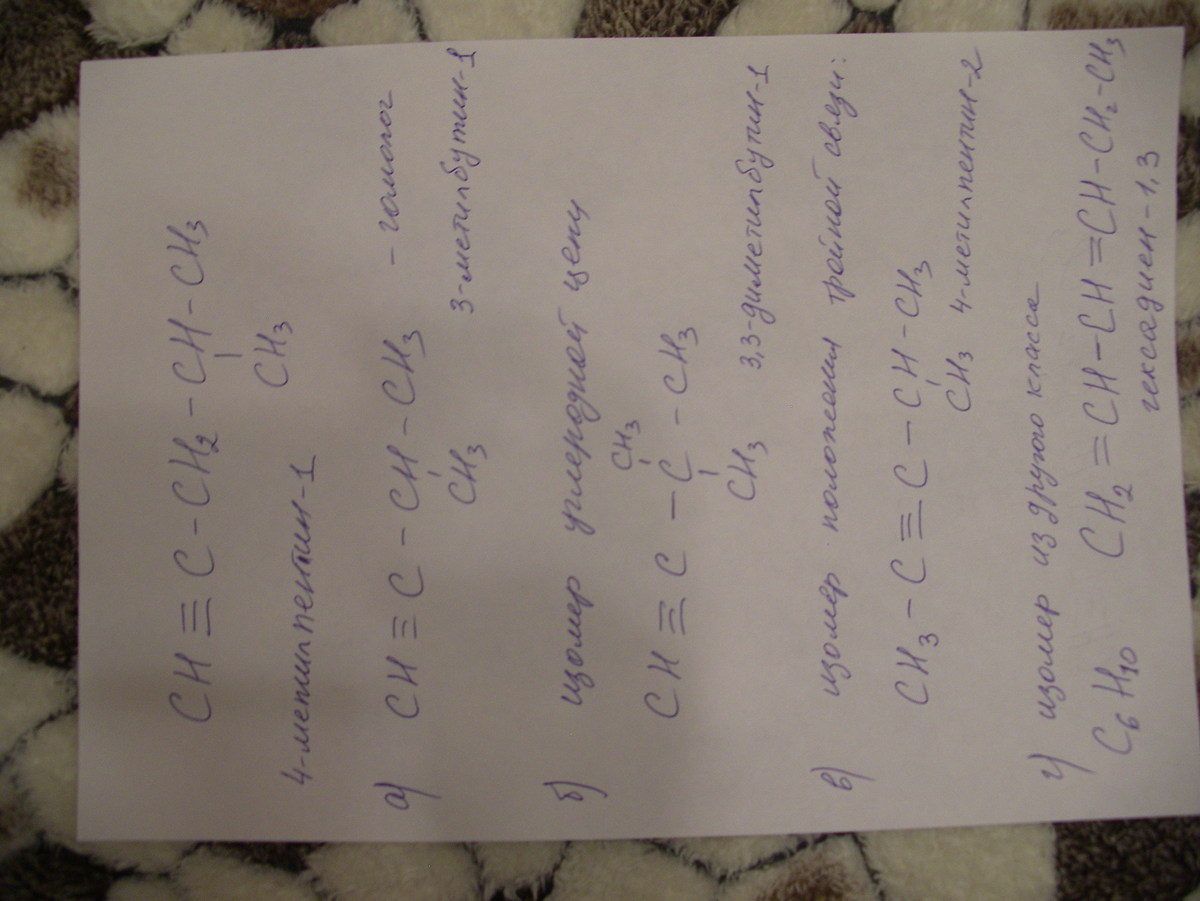 CH ≡ C - CH2 - CH - CH3
CH3
4-метилпентин-1
а) CH ≡ C - CH - CH3 - гомолог
CH3 3-метилбутин-1
б) изомер углеродной цепи
CH3
CH ≡ C - C - CH3
CH3 3,3-диметилбутин-1
в) изомер положения тройной связи:
CH3 - C ≡ C - CH - CH3
CH3 4-метилпентин-2
г) изомер из другого класса
C6H10 CH2 = CH - CH = CH - CH2 - CH3
гексадиен-1,3